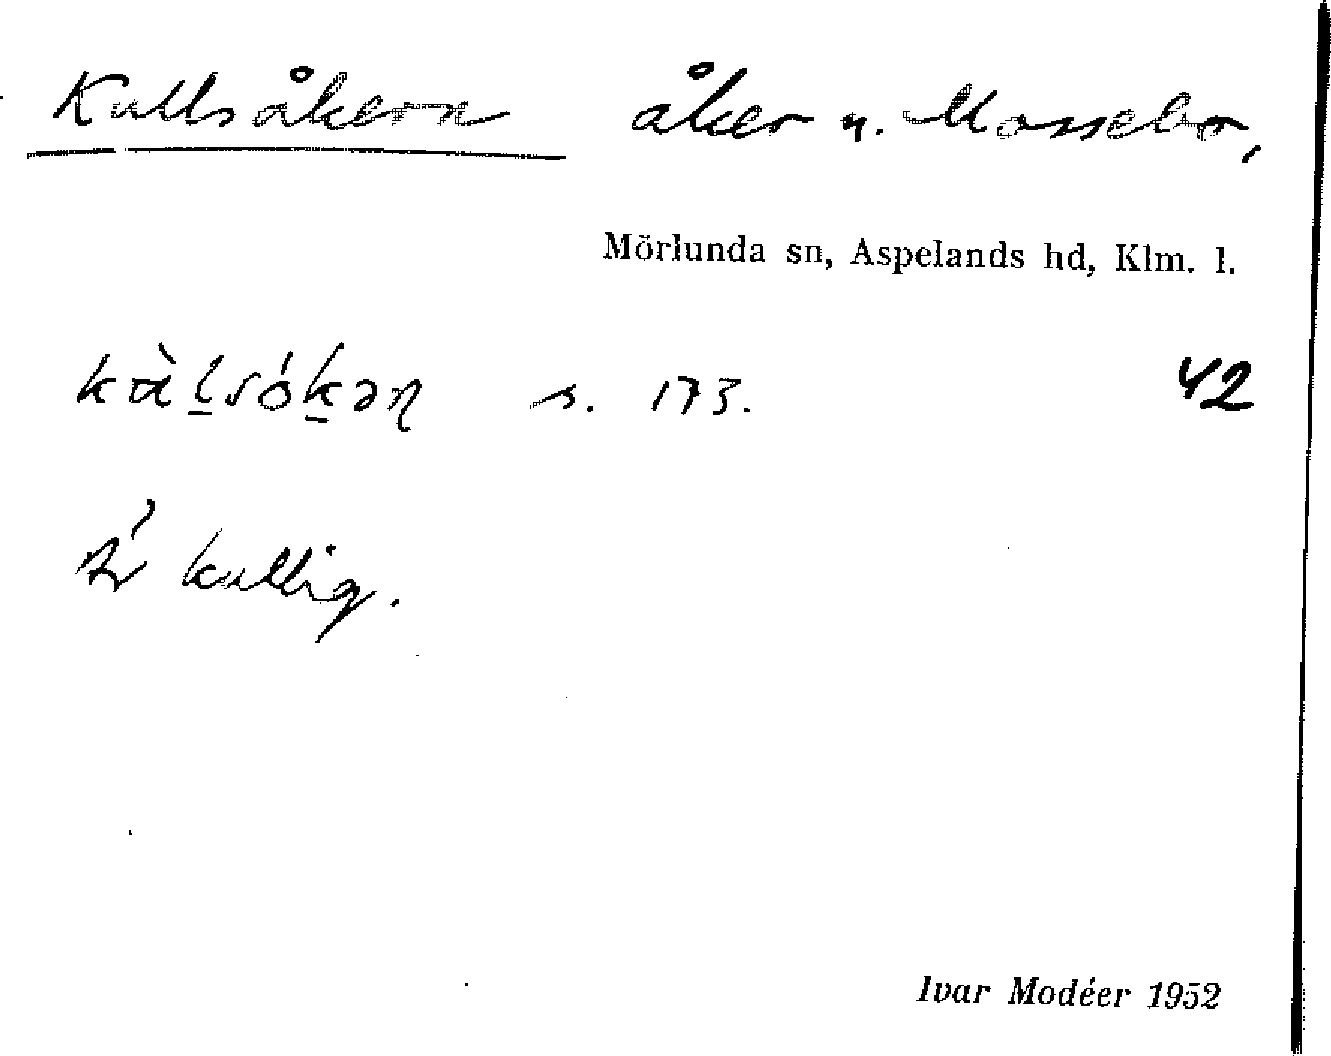 Kullsåkern åker n. Mossebo,
Mörlunda sn, Aspelands hd, Klm. l.
s. 173. 42
Är kullig.
Ivar Modéer 1952